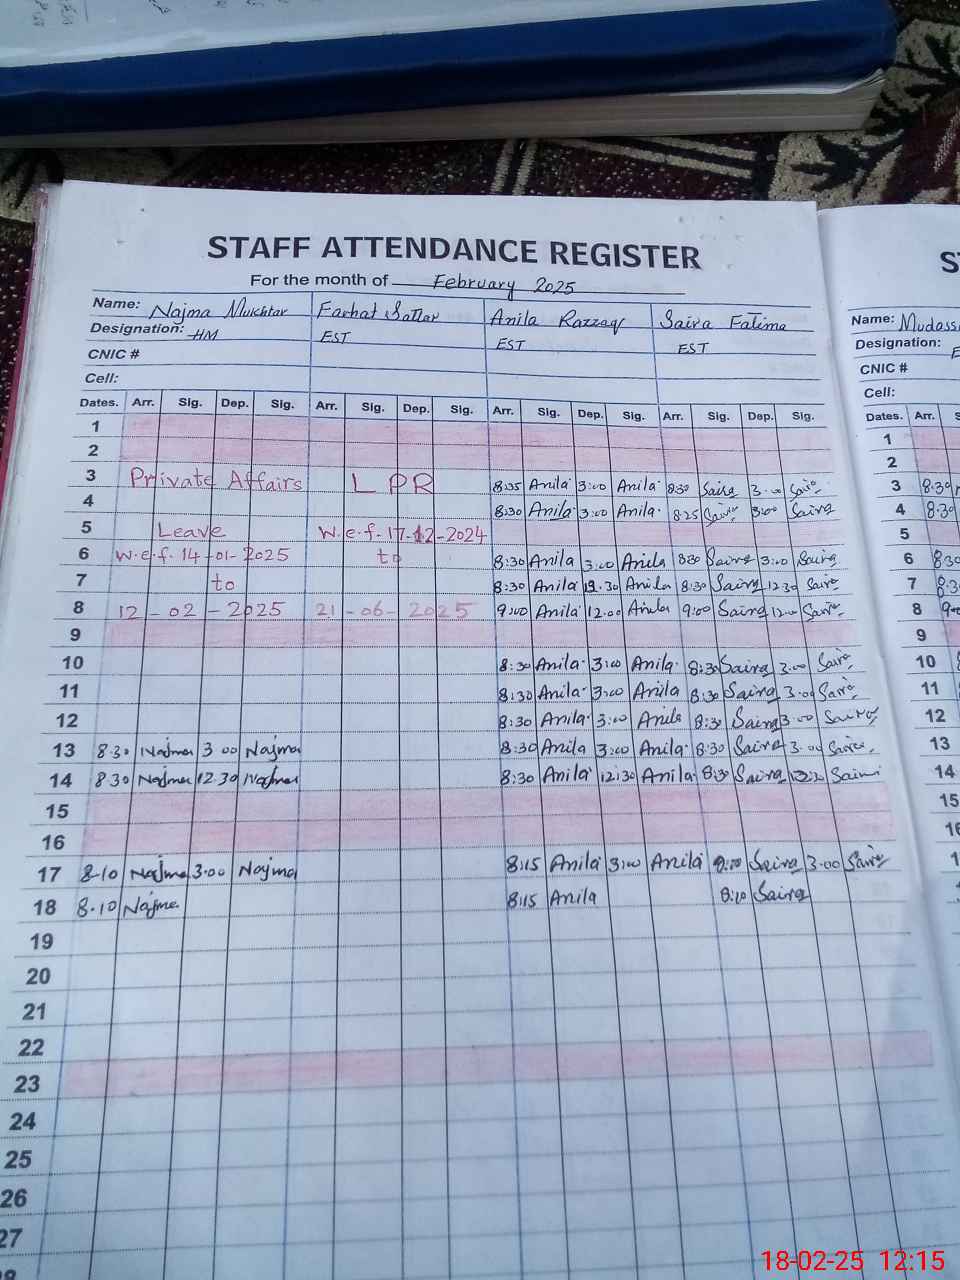 STAFF ATTENDANCE REGISTER
For the month of February 2025
Name: Najma Mukhtar Farhat Sattar Anila Razzaq Saira Fatima
Designation: HM EST EST EST
CNIC #
Cell:
Dates. Arr. Sig. Dep. Sig. Arr. Sig. Dep. Sig. Arr. Sig. Dep. Sig. Arr. Sig. Dep. Sig.
1
2
3 Private Affairs L PR 8:35 Anila 3:00 Anila 8:30 Saira 3:00 Saira
4 8:30 Anila 3:00 Anila 8:25 Saira 3:00 Saira
5 Leave w.e.f-17-12-2024
6 w.e.f-14-01-2025 to 8:30 Anila 3:00 Anila 8:30 Saira 3:00 Saira
7 to 8:30 Anila 12.30 Anila 8:30 Saira 12:30 Saira
8 12-02-2025 21-06-2025 9:00 Anila 12:00 Anila 9:00 Saira 12:00 Saira
9
10 8:30 Anila 3:00 Anila 8:30 Saira 3:00 Saira
11 8:30 Anila 3:00 Anila 8:30 Saira 3:00 Saira
12 8:30 Anila 3:00 Anila 8:30 Saira 3:00 Saira
13 8:30 Najma 3 00 Najma 8:30 Anila 3:00 Anila 8:30 Saira 3:00 Saira
14 8:30 Najma 12.30 Najma 8:30 Anila 12:30 Anila 8:30 Saira 12:30 Saira
15
16
17 8-10 Najma 3.00 Najma 8:15 Anila 3:00 Anila Saira 3:00 Saira
18 8.10 Najma 8:15 Anila Saira
19
20
21
22
23
24
25
26
27
Name:
Designation:
CNIC #
Cell:
Dates. Arr.
1
2
3 8:30
4 8:30
5
6 8:30
7 8:30
8
9
10
11
12
13
14
15
18-02-25 12:15